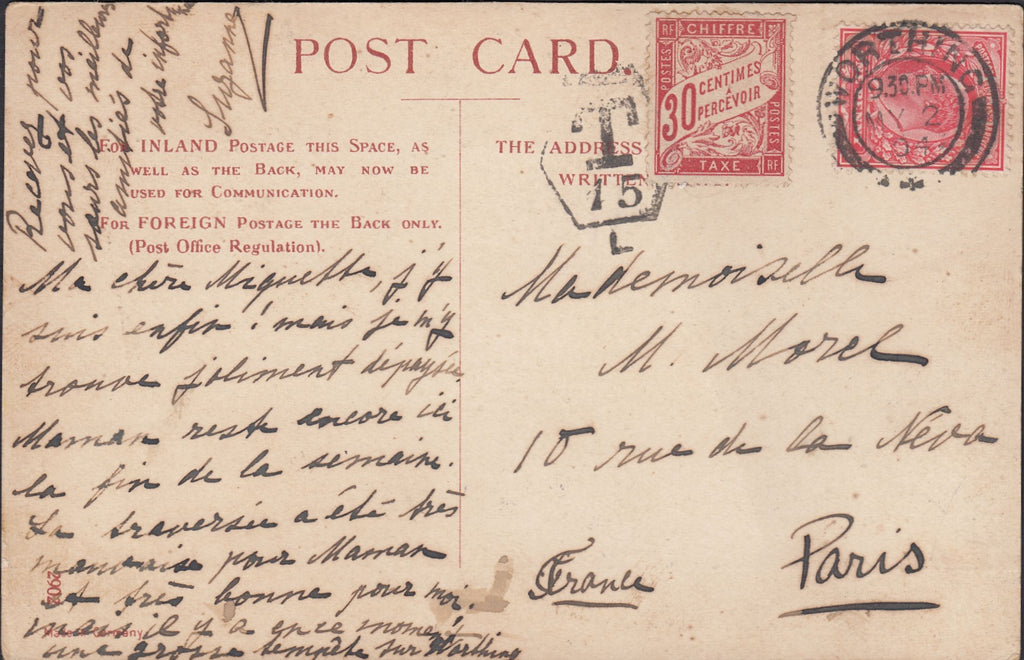 POST CARD.
For INLAND Postage this Space, as
well as the Back, may now be
used for Communication.
For FOREIGN Postage the Back only.
(Post Office Regulation).
THE ADDRESS
WRITTEN
T
15
L
RF CHIFFRE
POSTES
30 CENTIMES
À
PERCEVOIR
POSTES
TAXE RF
WORTHING
9.30 PM
MY 2
04
Ma chère Miquette, j'y
suis enfin! mais je m'y
trouve joliment dépaysée
Maman reste encore ici
la fin de la semaine.
La traversée a été très
mauvaise pour Maman
et très bonne pour moi.
mais il y a en ce moment
une grosse tempête sur Worthing
Recevez pour
vous et vos
sœurs les meilleures
amitiés de
votre
Suzanne
Mademoiselle
M. Morel
10 rue de la Néva
Paris
France
2902
Made in Germany